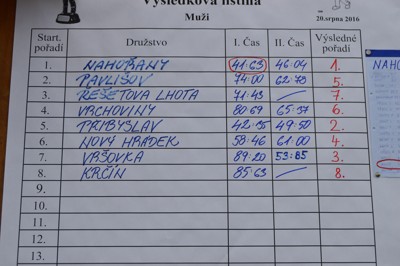 Výsledková listina
Muži
20.srpna 2016
Start. pořadí Družstvo I. Čas II. Čas Výsledné pořadí
1. NAHOŘANY 41:63 46:04 1.
2. PAVLIŠOV 74:00 62:73 5.
3. ŘEŠETOVA LHOTA 71:43 7.
4. VRCHOVINY 80:69 65:37 6.
5. PŘIBYSLAV 42:35 49:50 2.
6. NOVÝ HRÁDEK 58:46 61:00 4.
7. VRŠOVKA 89:20 53:85 3.
8. KRČÍN 85:63 8.
9.
10.
11.
12.
13.
NAHO